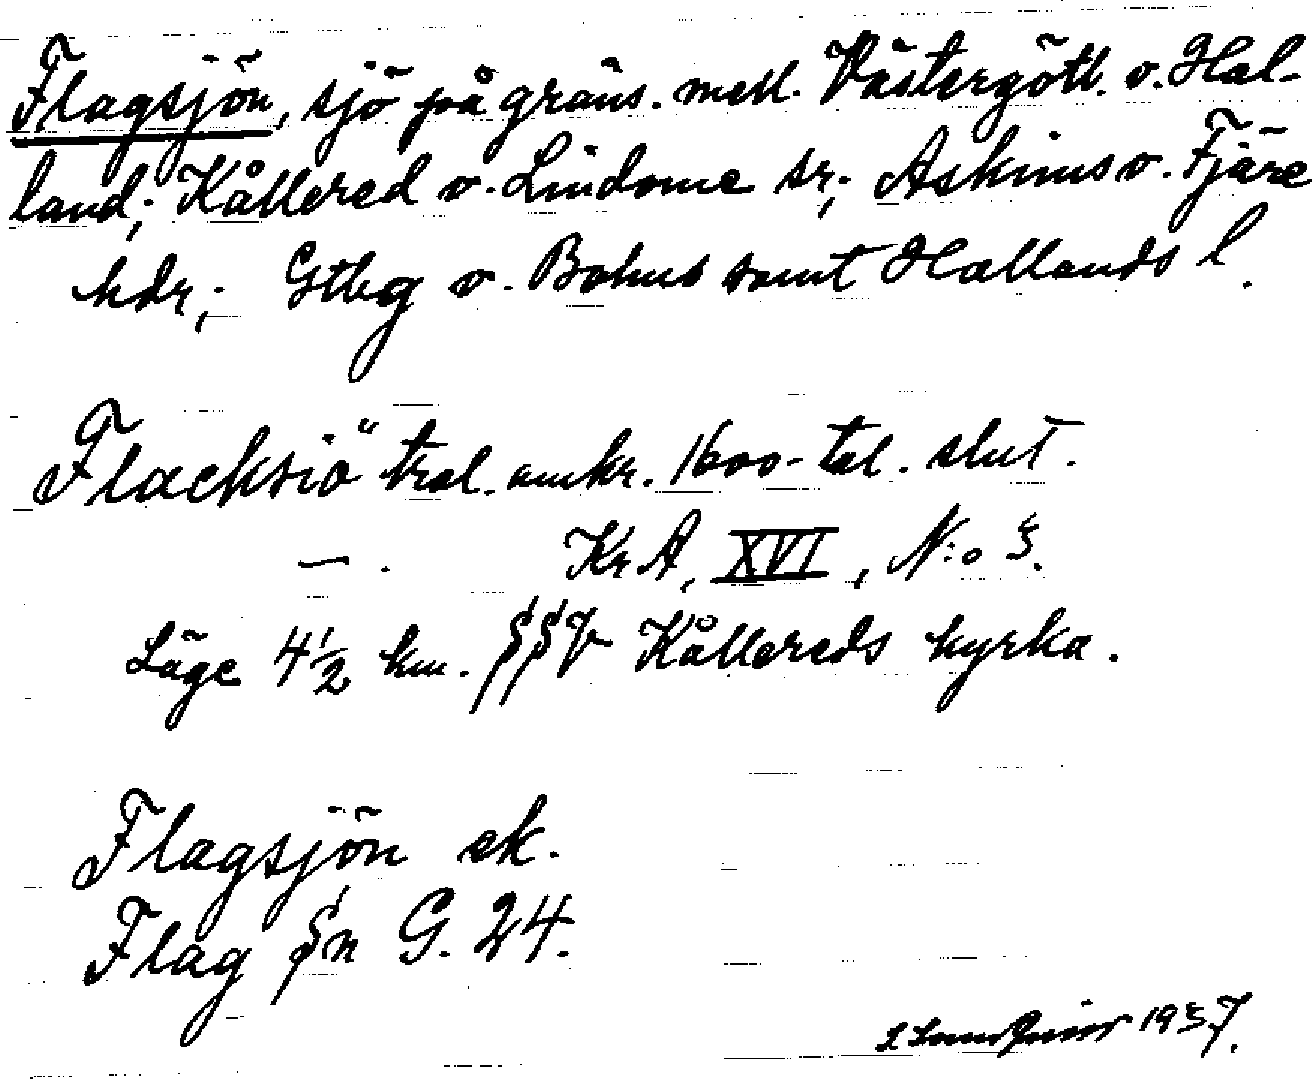 Flagsjön, sjö på gräns. mell. Västergötl. o. Hal-
land; Kållered o. Lindome sr; Askims o. Fjäre
hdr; Gtbg o. Bohus samt Hallands l.
Flacksiö tral. omkr. 1600-tal. slut.
—. KrA, XVI, N:o 5.
Läge 4½ km. SSV Kållereds kyrka.
Flagsjön ek.
Flag Sn G. 24.
1937.